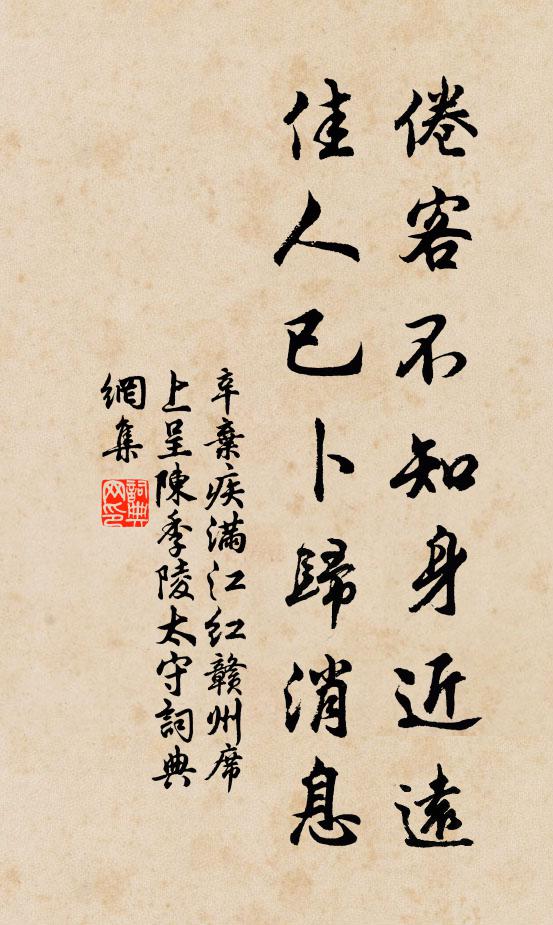 倦客不知身近遠
佳人已卜歸消息
辛棄疾滿江紅贛州席
上呈陳季陵太守詞典
網集
詞典
网印